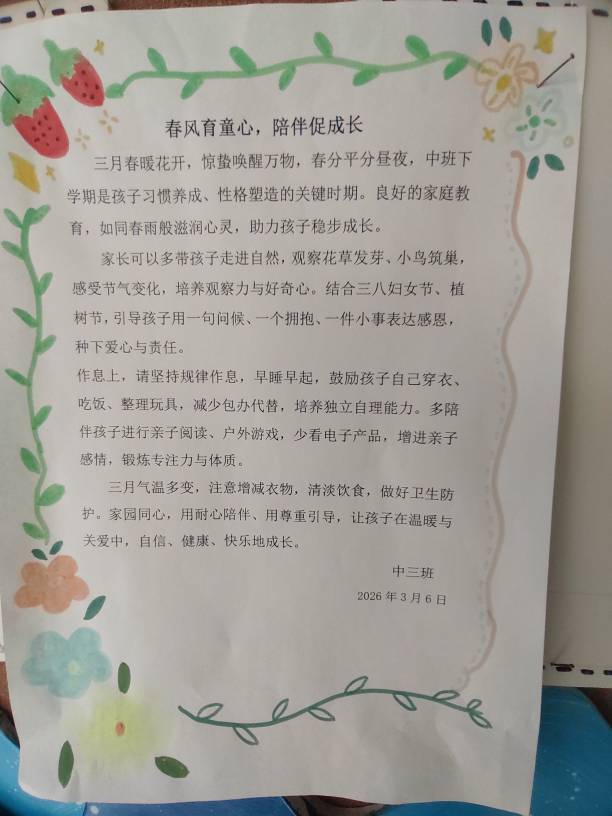 春风育童心，陪伴促成长
三月春暖花开，惊蛰唤醒万物，春分平分昼夜，中班下
学期是孩子习惯养成、性格塑造的关键时期。良好的家庭教
育，如同春雨般滋润心灵，助力孩子稳步成长。
家长可以多带孩子走进自然，观察花草发芽、小鸟筑巢，
感受节气变化，培养观察力与好奇心。结合三八妇女节、植
树节，引导孩子用一句问候、一个拥抱、一件小事表达感恩，
种下爱心与责任。
作息上，请坚持规律作息，早睡早起，鼓励孩子自己穿衣、
吃饭、整理玩具，减少包办代替，培养独立自理能力。多陪
伴孩子进行亲子阅读、户外游戏，少看电子产品，增进亲子
感情，锻炼专注力与体质。
三月气温多变，注意增减衣物，清淡饮食，做好卫生防
护。家园同心，用耐心陪伴、用尊重引导，让孩子在温暖与
关爱中，自信、健康、快乐地成长。
中三班
2026年3月6日